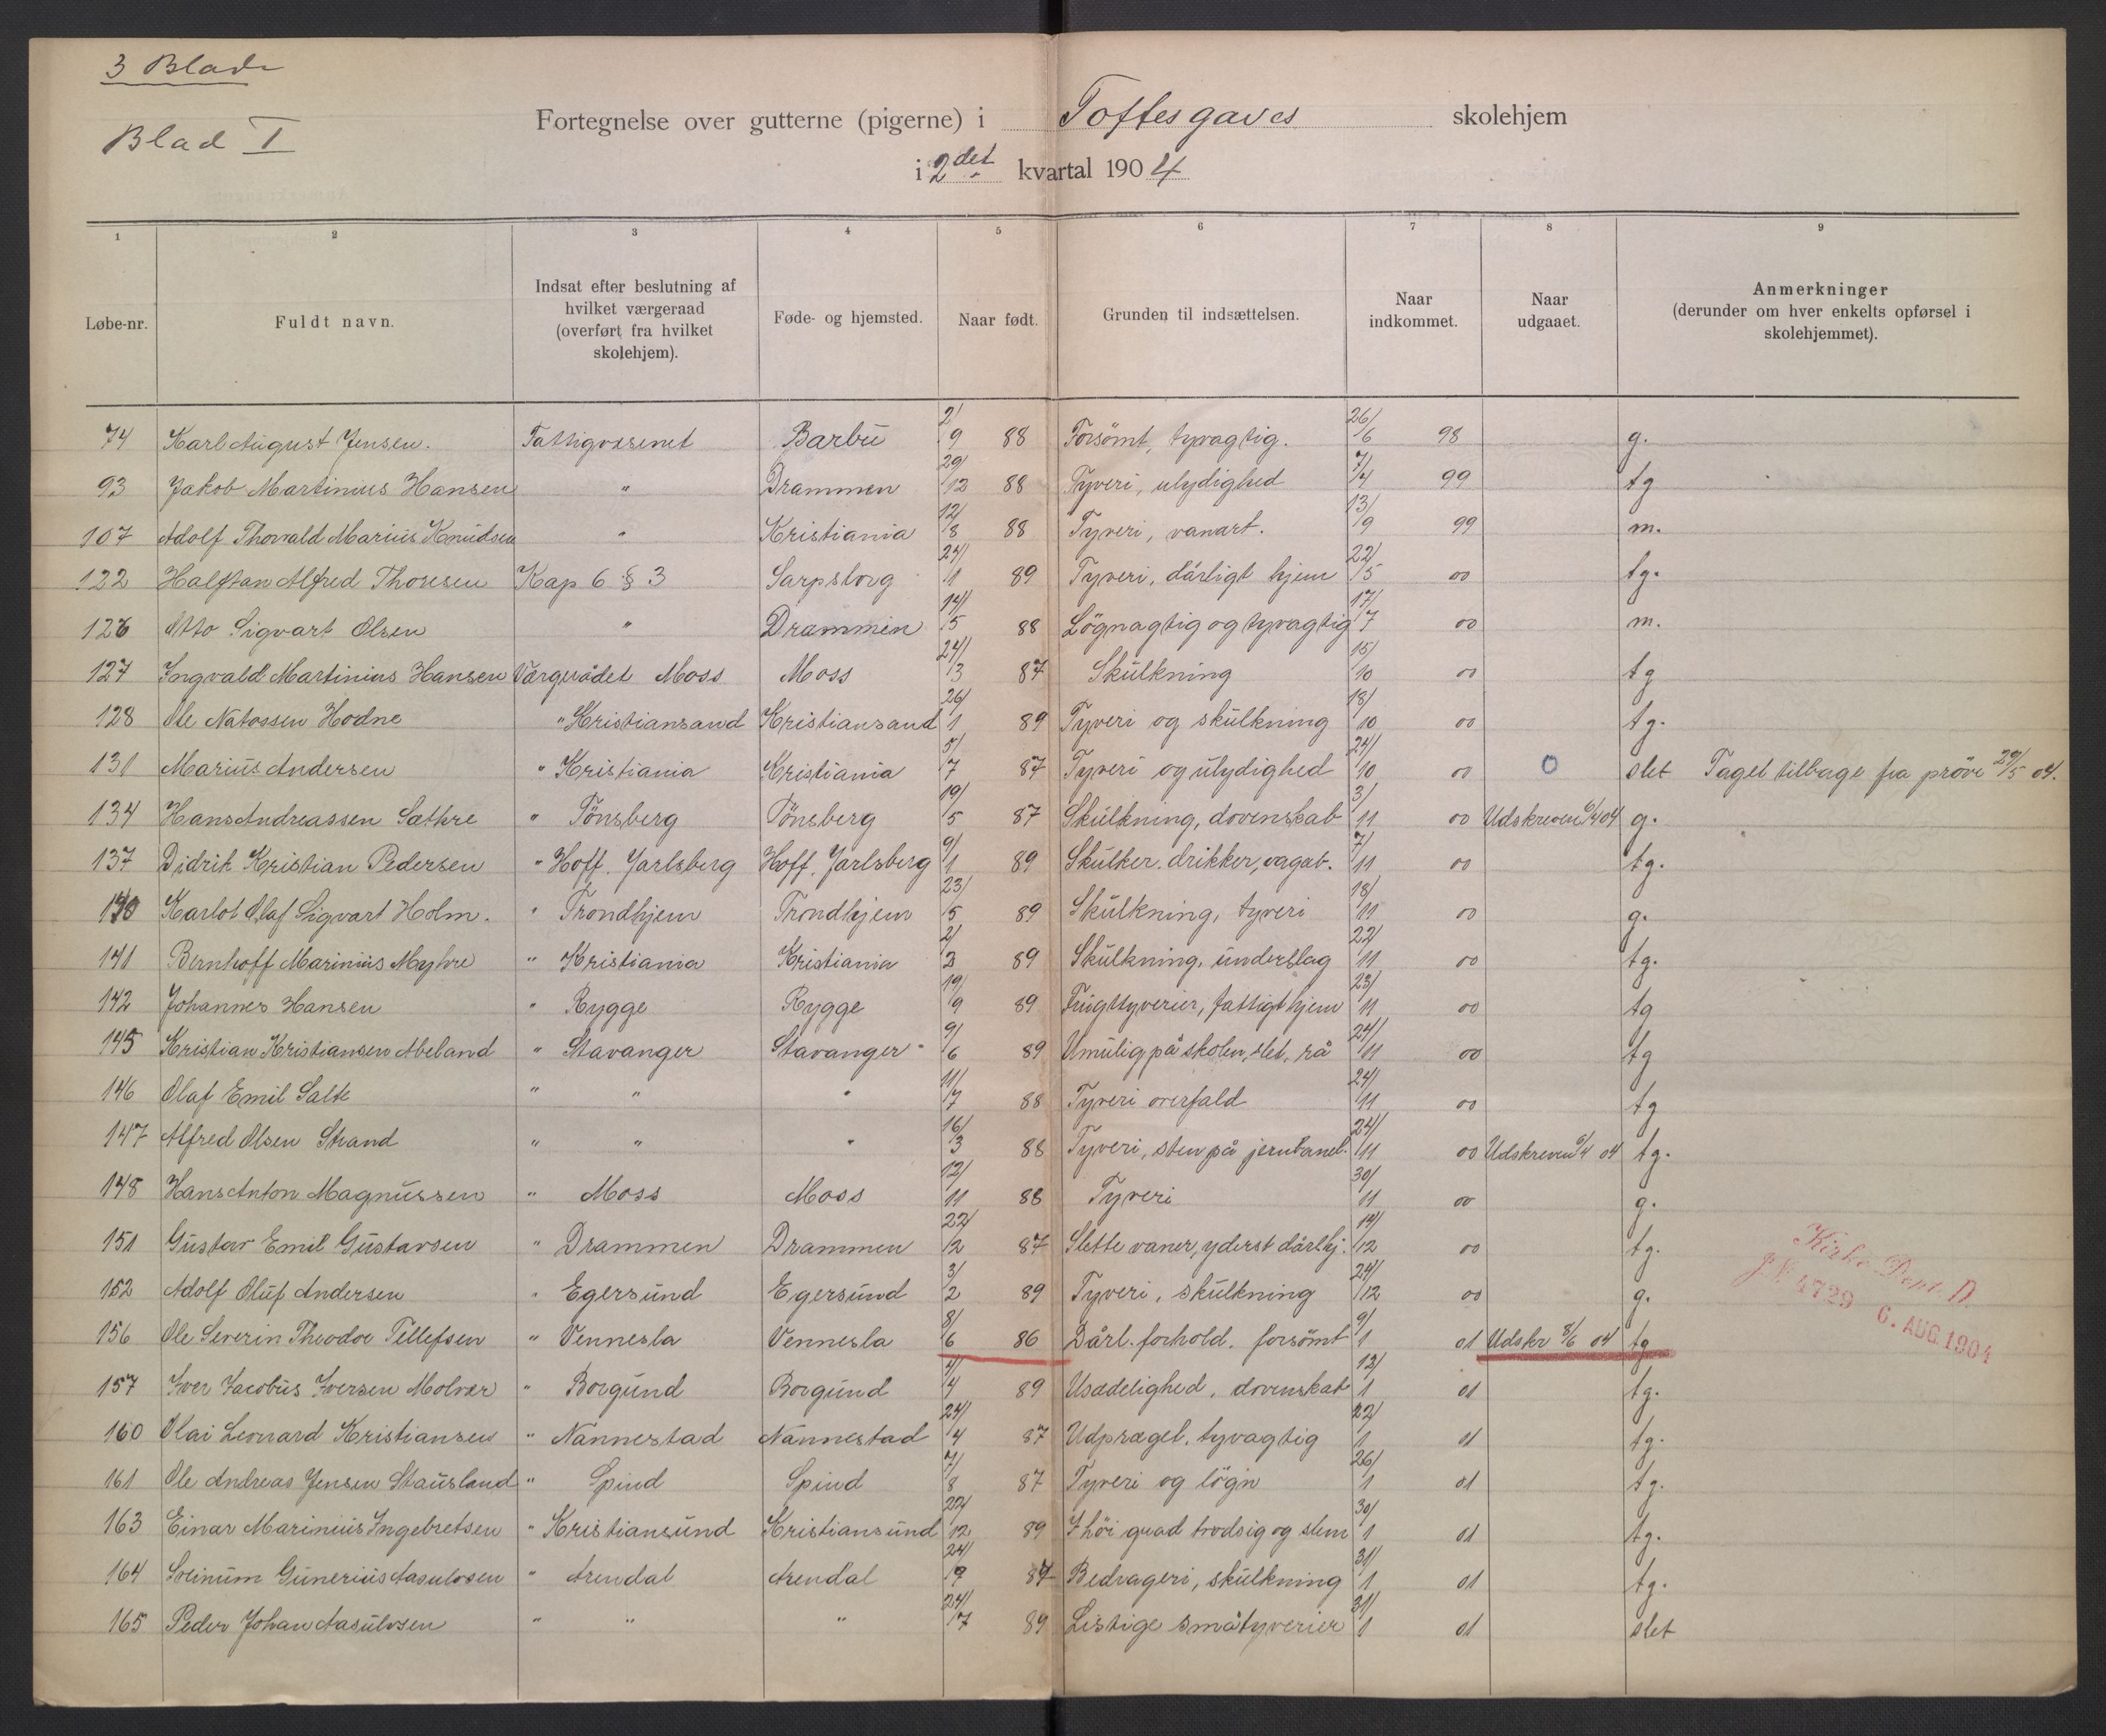 3 Blade
Blad I
Fortegnelse over gutterne (pigerne) i Toftes gaves skolehjem
i 2det kvartal 1904
1 2 3 4 5 6 7 8 9
Løbe-nr. Fuldt navn. Indsat efter beslutning af hvilket værgeraad (overført fra hvilket skolehjem). Føde- og hjemsted. Naar født. Grunden til indsættelsen. Naar indkommet. Naar udgaaet. Anmerkninger (derunder om hver enkelts opførsel i skolehjemmet).
74 Karl August Jensen. Fattigvæsenet Barbu 2/9 88 Forsömt, tyvagtig. 26/6 98 g.
93 Jakob Martinius Hansen " Drammen 29/12 88 Tyveri, ulydighed 7/4 99 tg
107 Adolf Thorvald Marius Knudsen " Kristiania 12/8 88 Tyveri, vanart. 13/9 99 m.
122 Halfdan Alfred Thoresen Kap 6 § 3 Sarpsborg 24/1 89 Tyveri, dårligt hjem 22/5 00 tg.
126 Otto Sigvart Olsen " Drammen 14/5 88 Lögnagtig og tyvagtig 17/7 00 m.
127 Ingvald Martinius Hansen Værgerådet Moss Moss 24/3 87 Skulkning 15/10 00 tg
128 Ole Natossen Hodne " Kristiansand Kristiansand 26/1 89 Tyveri og skulkning 18/10 00 tg.
131 Marius Andersen " Kristiania Kristiania 5/7 87 Tyveri og ulydighed 24/10 00 0 slet Taget tilbage fra pröve 29/5 04.
134 Hans Andreassen Sæthre " Tönsberg Tönsberg 19/5 87 Skulkning, dovenskab 3/11 00 Udskreven /4 04 g.
137 Didrik Kristian Pedersen " Hoff. Jarlsberg Hoff. Jarlsberg 9/1 89 Skulker. drikker, vagab. 7/11 00 tg.
140 Karlot Olaf Sigvart Holm. " Trondhjem Trondhjem 23/5 89 Skulkning, tyveri 18/11 00 g.
141 Bernhoff Marinius Myhre " Kristiania Kristiania 2/3 89 Skulkning, underslag 22/11 00 tg.
142 Johannes Hansen " Rygge Rygge 19/9 89 Frugttyverier, fattigt hjem 23/11 00 tg
145 Kristian Kristiansen Abeland " Stavanger Stavanger 9/6 89 Umulig på skolen, slet, rå 24/11 00 tg
146 Olaf Emil Salte " " " 11/7 88 Tyveri overfald 24/11 00 tg
147 Alfred Olsen Strand " " " 16/3 88 Tyveri, sten på jernbanel. 24/11 00 Udskreven /4 04 tg.
148 Hans Anton Magnussen " Moss Moss 12/11 88 Tyveri 30/11 00 g.
151 Gustav Emil Gustavsen " Drammen Drammen 22/2 87 Slette vaner, yderst dårl hj. 14/12 00 tg.
152 Adolf Oluf Andersen " Egersund Egersund 3/2 89 Tyveri, skulkning 24/12 00 g.
156 Ole Severin Theodor Tellefsen " Vennesla Vennesla 8/6 86 Dårl. forhold. forsömt 9/1 01 Udskr 8/6 04 tg
157 Iver Jacobus Iversen Molvær " Borgund Borgund 4/4 89 Usædelighed, dovenskab 12/1 01 tg.
160 Olai Leonard Kristiansen " Nannestad Nannestad 24/4 87 Udpræget, tyvagtig 22/1 01 tg.
161 Ole Andreas Jensen Stausland " Spind Spind 7/8 87 Tyveri og lögn 26/1 01 tg.
163 Einar Marinius Ingebretsen " Kristiansund Kristiansund 22/12 89 I höi grad trodsig og slem 30/1 01 tg.
164 Gunerius Aasulvsen " Arendal Arendal 24/9 87 Bedrageri, skulkning 31/1 01 tg.
165 Peder Johan Aasulvsen " " " 24/7 89 Listige småtyverier 31/1 01 slet
Kirke Dept. D.
J. N. 4729 6. AUG. 1904